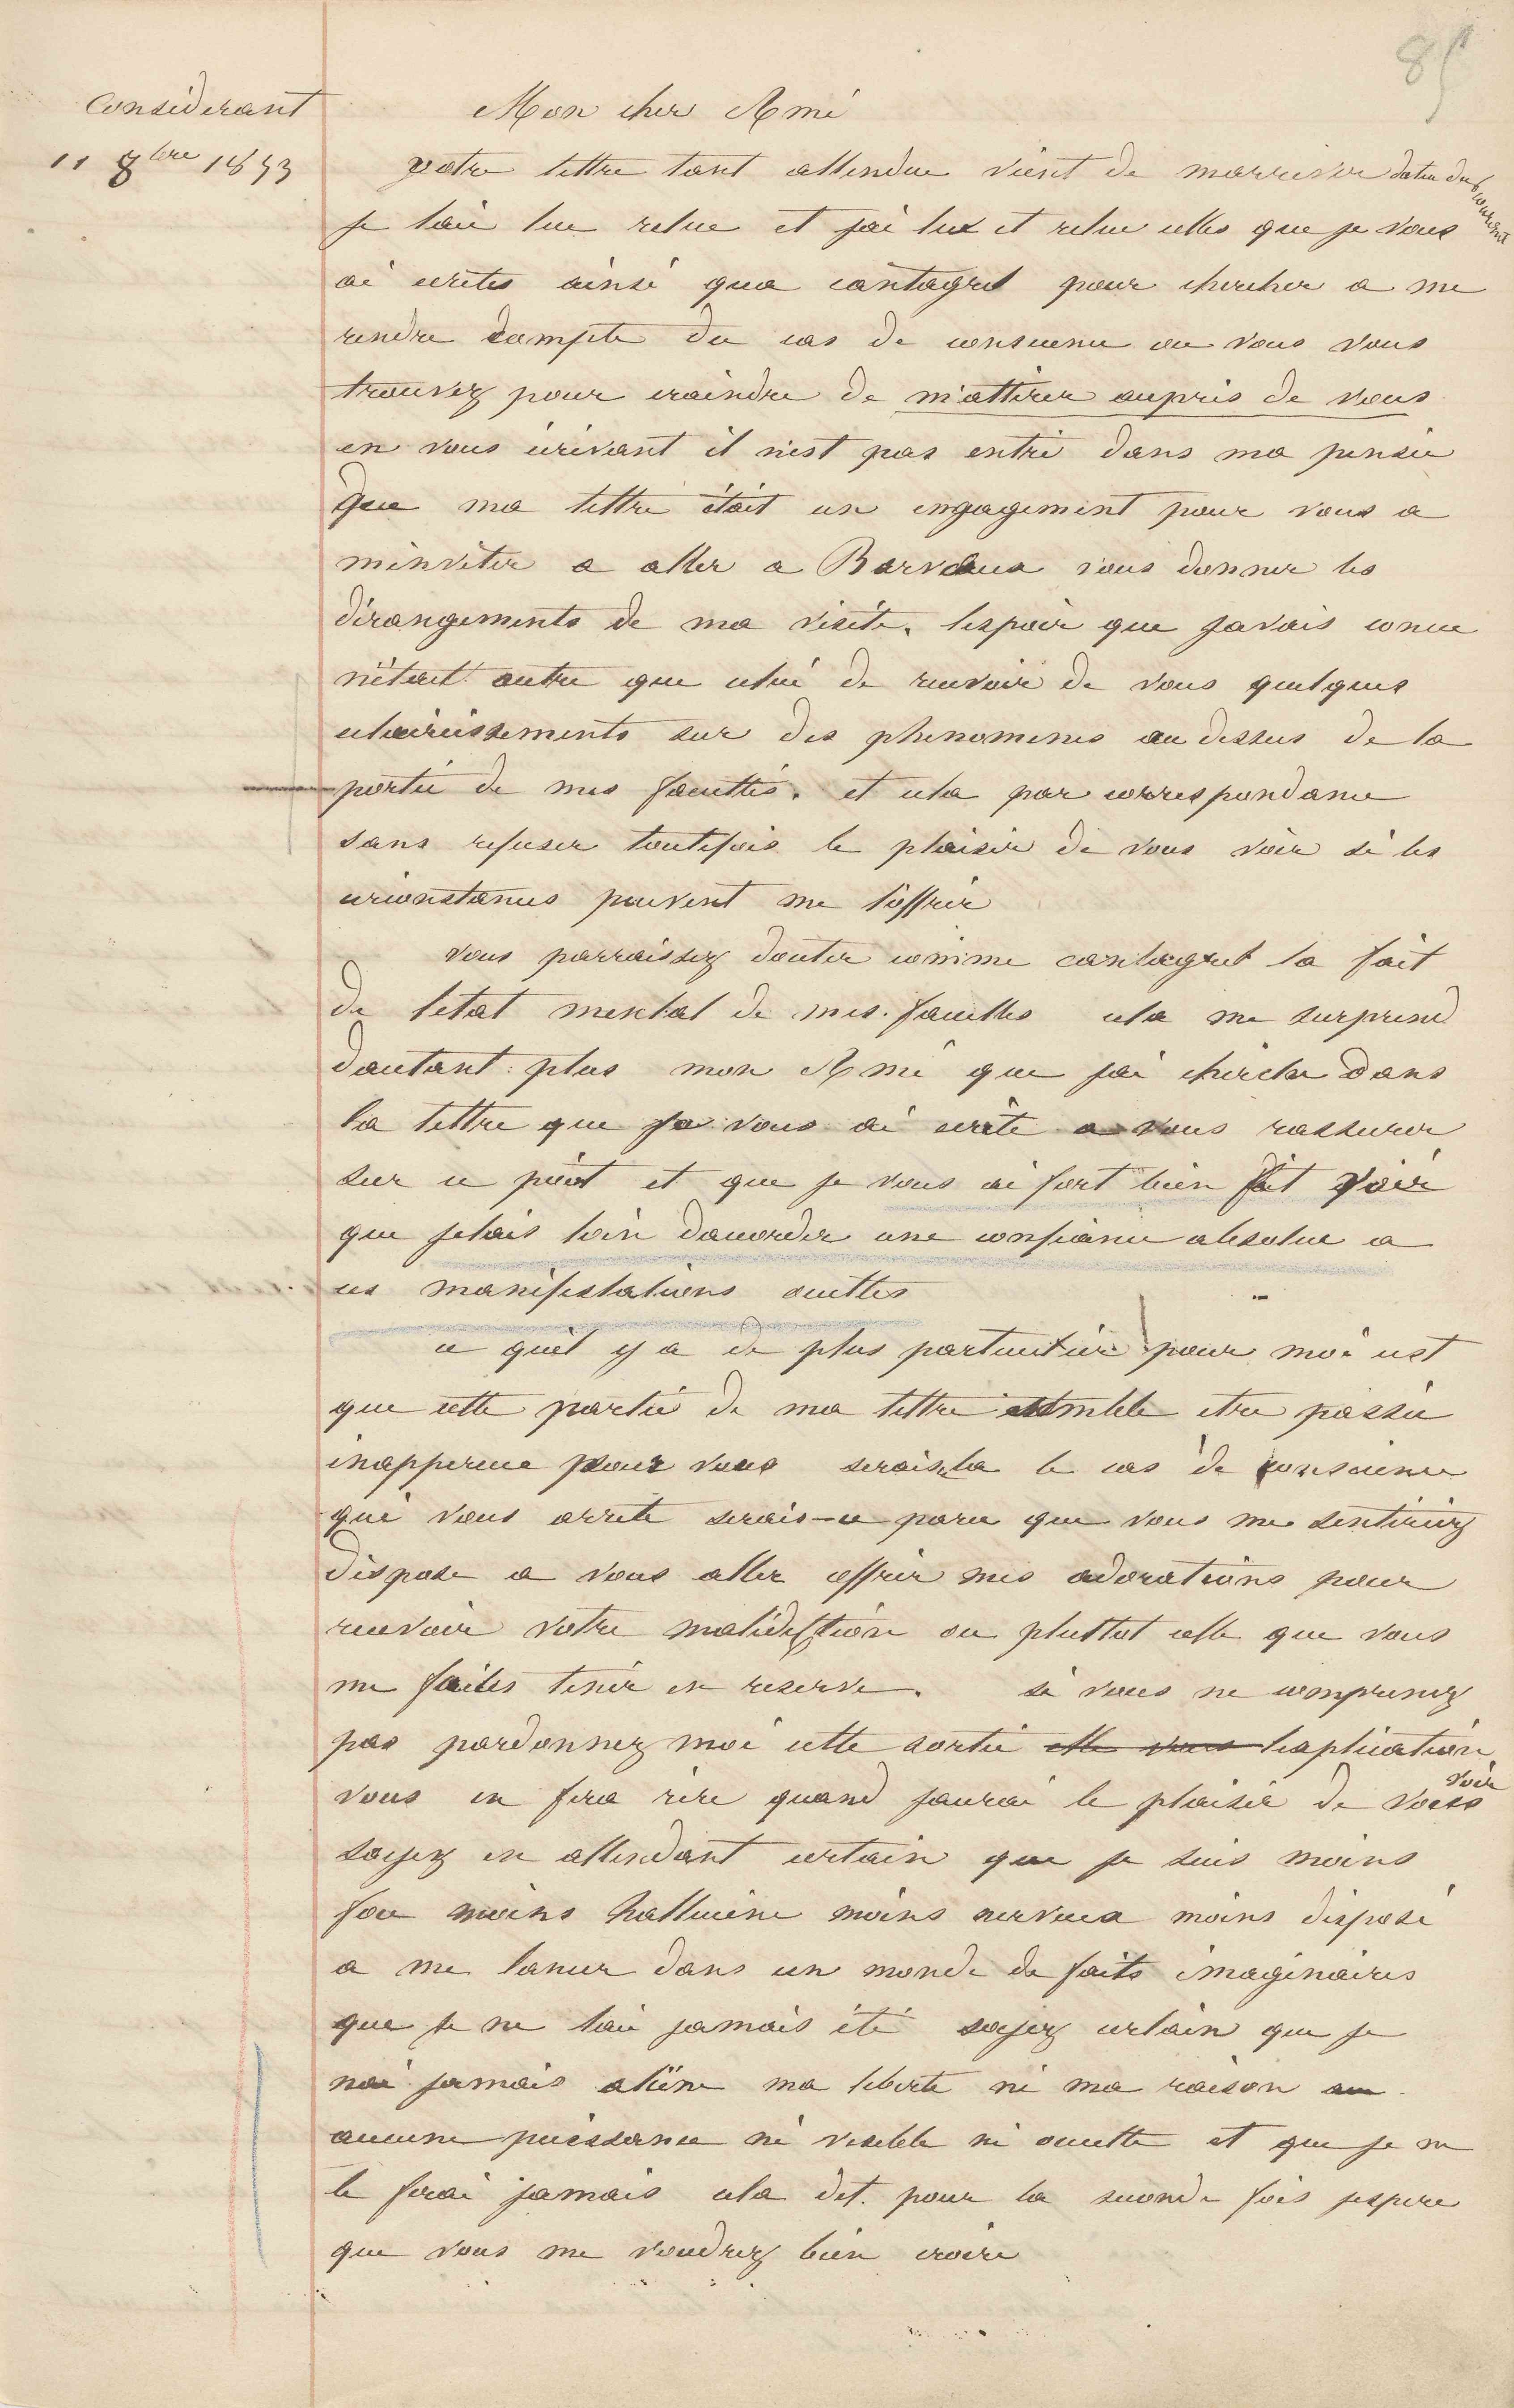 85
Considerant
11 8bre 1853
Mon cher Ami
votre lettre tant attendue vient de marriver datee du 6 courant
je laie lue relue et jai lue et relue celles que je vous
ai ecrites ainsi qua cantagrel pour chercher a me
rendre compte du cas de conscience ou vous vous
trouvez pour craindre de m'attirer auprès de vous
en vous écrivant il nest pas entré dans ma pensée
que ma lettre était un engagement pour vous a
minviter a aller a Barvaux vous donner les
dérangements de ma visite. lespoir que javais concue
nétait autre que celui de recevoir de vous quelques
eclaircissements sur des phenomenes au dessus de la
portée de mes facultés. et cela par correspondance
sans refuser toutefois le plaisir de vous voir si les
circonstances peuvent me l'offrir
vous parraissez douter comme cantagrel la fait
de letat mental de mes facultes cela me surprend
dautant plus mon Ami que jai cherche dans
la lettre que je vous ai ecrite a vous rassurer
sur ce point et que je vous ai fort bien fait voir
que jetais loin daccorder une confiance absolue a
ces manifestations occultes
ce quil y a de plus particulier pour moi cest
que cette partie de ma lettre semble etre passée
inappercue pour vous serais-la le cas de conscience
qui vous arrete serais-ce parce que vous me sentiriez
dispose a vous aller offrir mes adorations pour
recevoir votre malediction ou pluttot celle que vous
me faites tenir en reserve. si vous ne comprenez
pas pardonnez moi cette sortie elle vous lexplication
vous en fera rire quand jaurai le plaisir de vous voir
soyez en attendant certain que je suis moins
fou moins hallucine moins nerveux moins disposé
a me lancer dans un monde de faits imaginaires
que je ne laie jamais été soyez certain que je
nai jamais aliéne ma liberte ni ma raison au
aucune puissance ni visible ni occulte et que je ne
le ferai jamais cela dit. pour la seconde fois jespere
que vous me voudrez bien croire